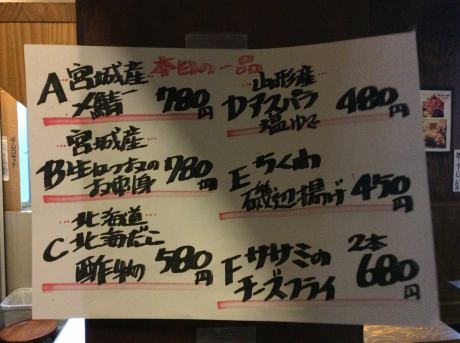 本日の一品
A 宮城産
〆鯖 780円
宮城産
B 生かつおの
お刺身 780円
北海道
C 北海だこ
酢物 580円
山形産
D アスパラ
塩ゆで 480円
E ちくわ
磯辺揚げ 450円
F ササミの 2本
チーズフライ 680円